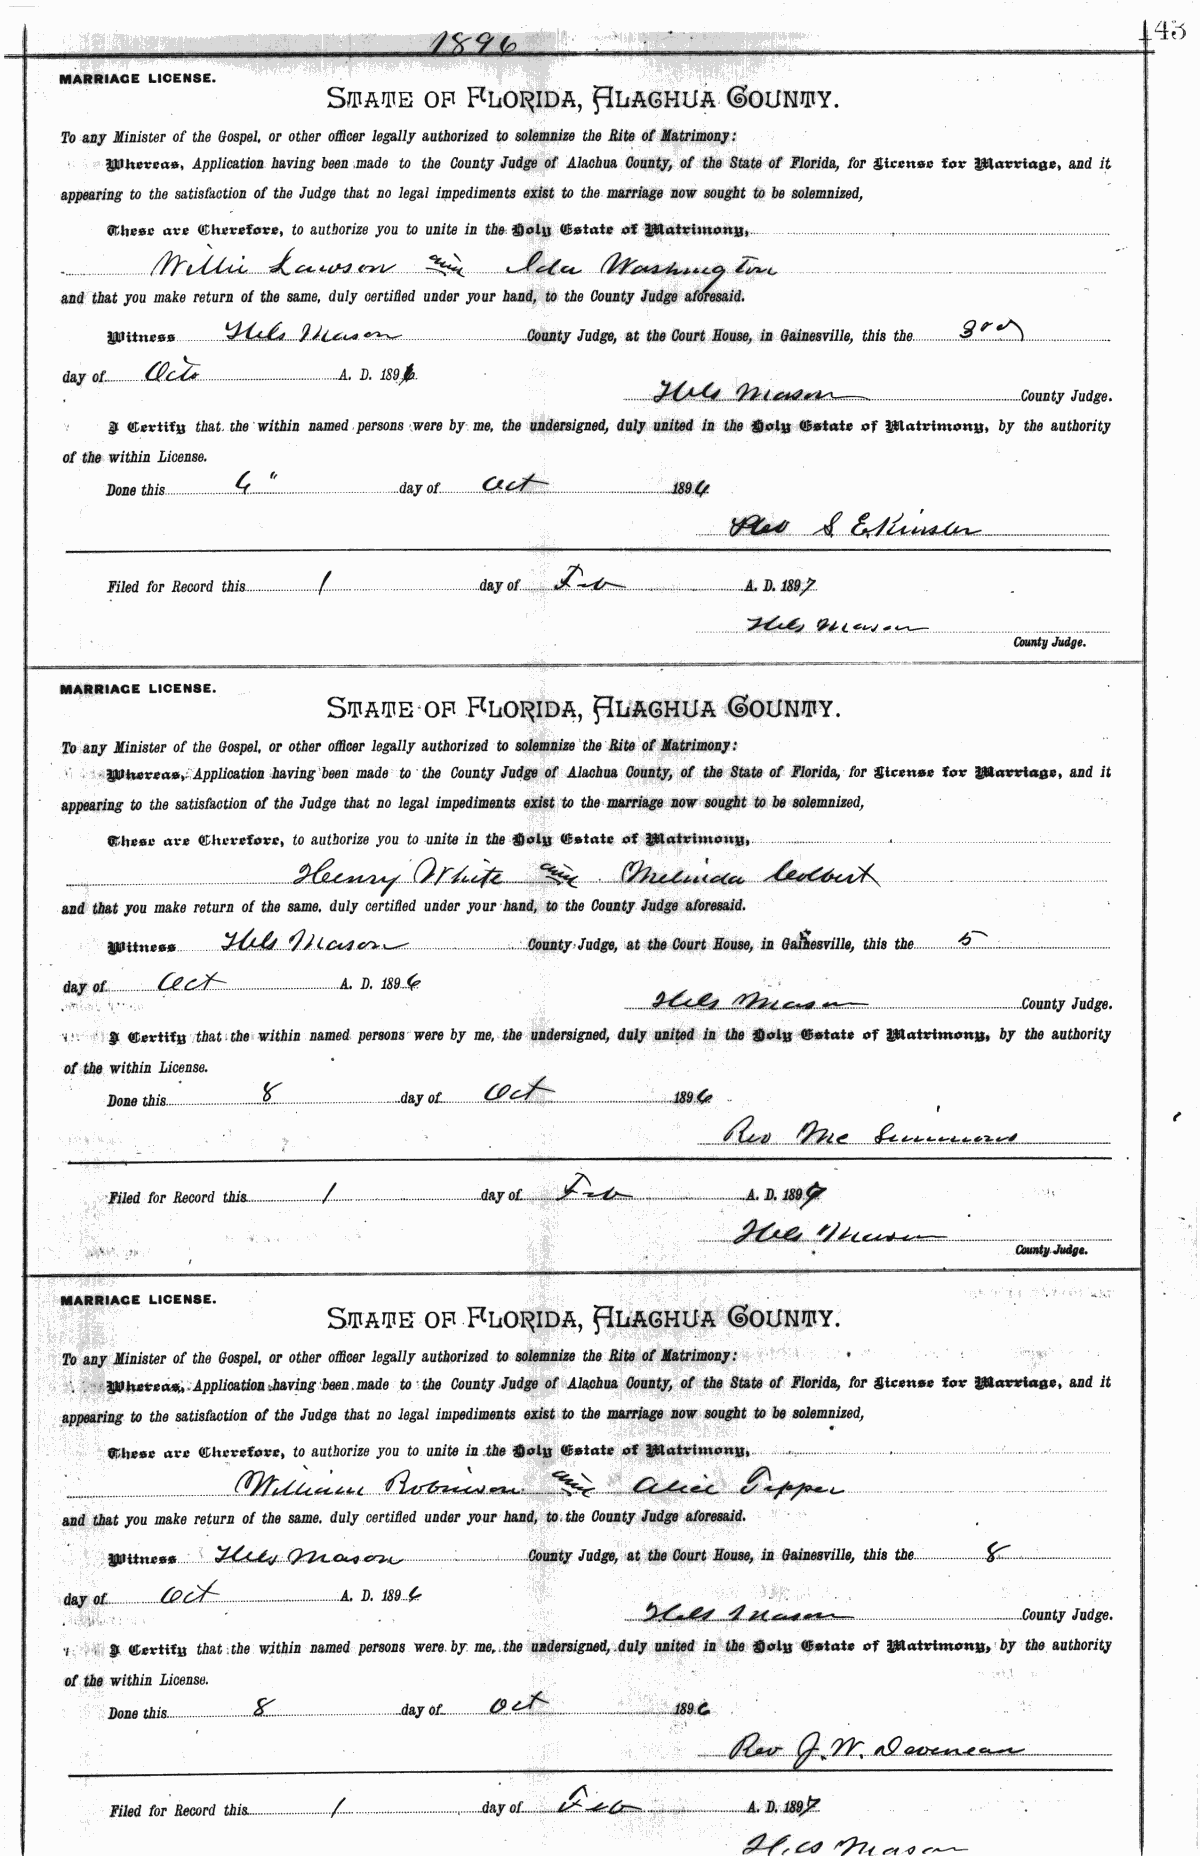 143
1896
MARRIAGE LICENSE.
STATE OF FLORIDA, ALACHUA COUNTY.
To any Minister of the Gospel, or other officer legally authorized to solemnize the Rite of Matrimony:
Whereas, Application having been made to the County Judge of Alachua County, of the State of Florida, for License for Marriage, and it
appearing to the satisfaction of the Judge that no legal impediments exist to the marriage now sought to be solemnized,
These are Therefore, to authorize you to unite in the Holy Estate of Matrimony,
Willie Lawson and Ida Washington
and that you make return of the same, duly certified under your hand, to the County Judge aforesaid.
Witness Hels Mason County Judge, at the Court House, in Gainesville, this the 3rd
day of Oct A. D. 1896
Hels Mason County Judge.
I Certify that the within named persons were by me, the undersigned, duly united in the Holy Estate of Matrimony, by the authority
of the within License.
Done this 6" day of Oct 1896
Rev S. E. Kinsler
Filed for Record this 1 day of Feb A. D. 1897
Hels Mason
County Judge.
MARRIAGE LICENSE.
STATE OF FLORIDA, ALACHUA COUNTY.
To any Minister of the Gospel, or other officer legally authorized to solemnize the Rite of Matrimony:
Whereas, Application having been made to the County Judge of Alachua County, of the State of Florida, for License for Marriage, and it
appearing to the satisfaction of the Judge that no legal impediments exist to the marriage now sought to be solemnized,
These are Therefore, to authorize you to unite in the Holy Estate of Matrimony,
Henry White and Melinda Colbert
and that you make return of the same, duly certified under your hand, to the County Judge aforesaid.
Witness Hels Mason County Judge, at the Court House, in Gainesville, this the 5
day of Oct A. D. 1896
Hels Mason County Judge.
I Certify that the within named persons were by me, the undersigned, duly united in the Holy Estate of Matrimony, by the authority
of the within License.
Done this 8 day of Oct 1896
Rev Mc Simmons
Filed for Record this 1 day of Feb A. D. 1897
Hels Mason
County Judge.
MARRIAGE LICENSE.
STATE OF FLORIDA, ALACHUA COUNTY.
To any Minister of the Gospel, or other officer legally authorized to solemnize the Rite of Matrimony:
Whereas, Application having been made to the County Judge of Alachua County, of the State of Florida, for License for Marriage, and it
appearing to the satisfaction of the Judge that no legal impediments exist to the marriage now sought to be solemnized,
These are Therefore, to authorize you to unite in the Holy Estate of Matrimony,
William Robinson and Alice Tipper
and that you make return of the same, duly certified under your hand, to the County Judge aforesaid.
Witness Hels Mason County Judge, at the Court House, in Gainesville, this the 8
day of Oct A. D. 1896
Hels Mason County Judge.
I Certify that the within named persons were by me, the undersigned, duly united in the Holy Estate of Matrimony, by the authority
of the within License.
Done this 8 day of Oct 1896
Rev J. W.
Filed for Record this 1 day of Feb A. D. 1897
Hels Mason